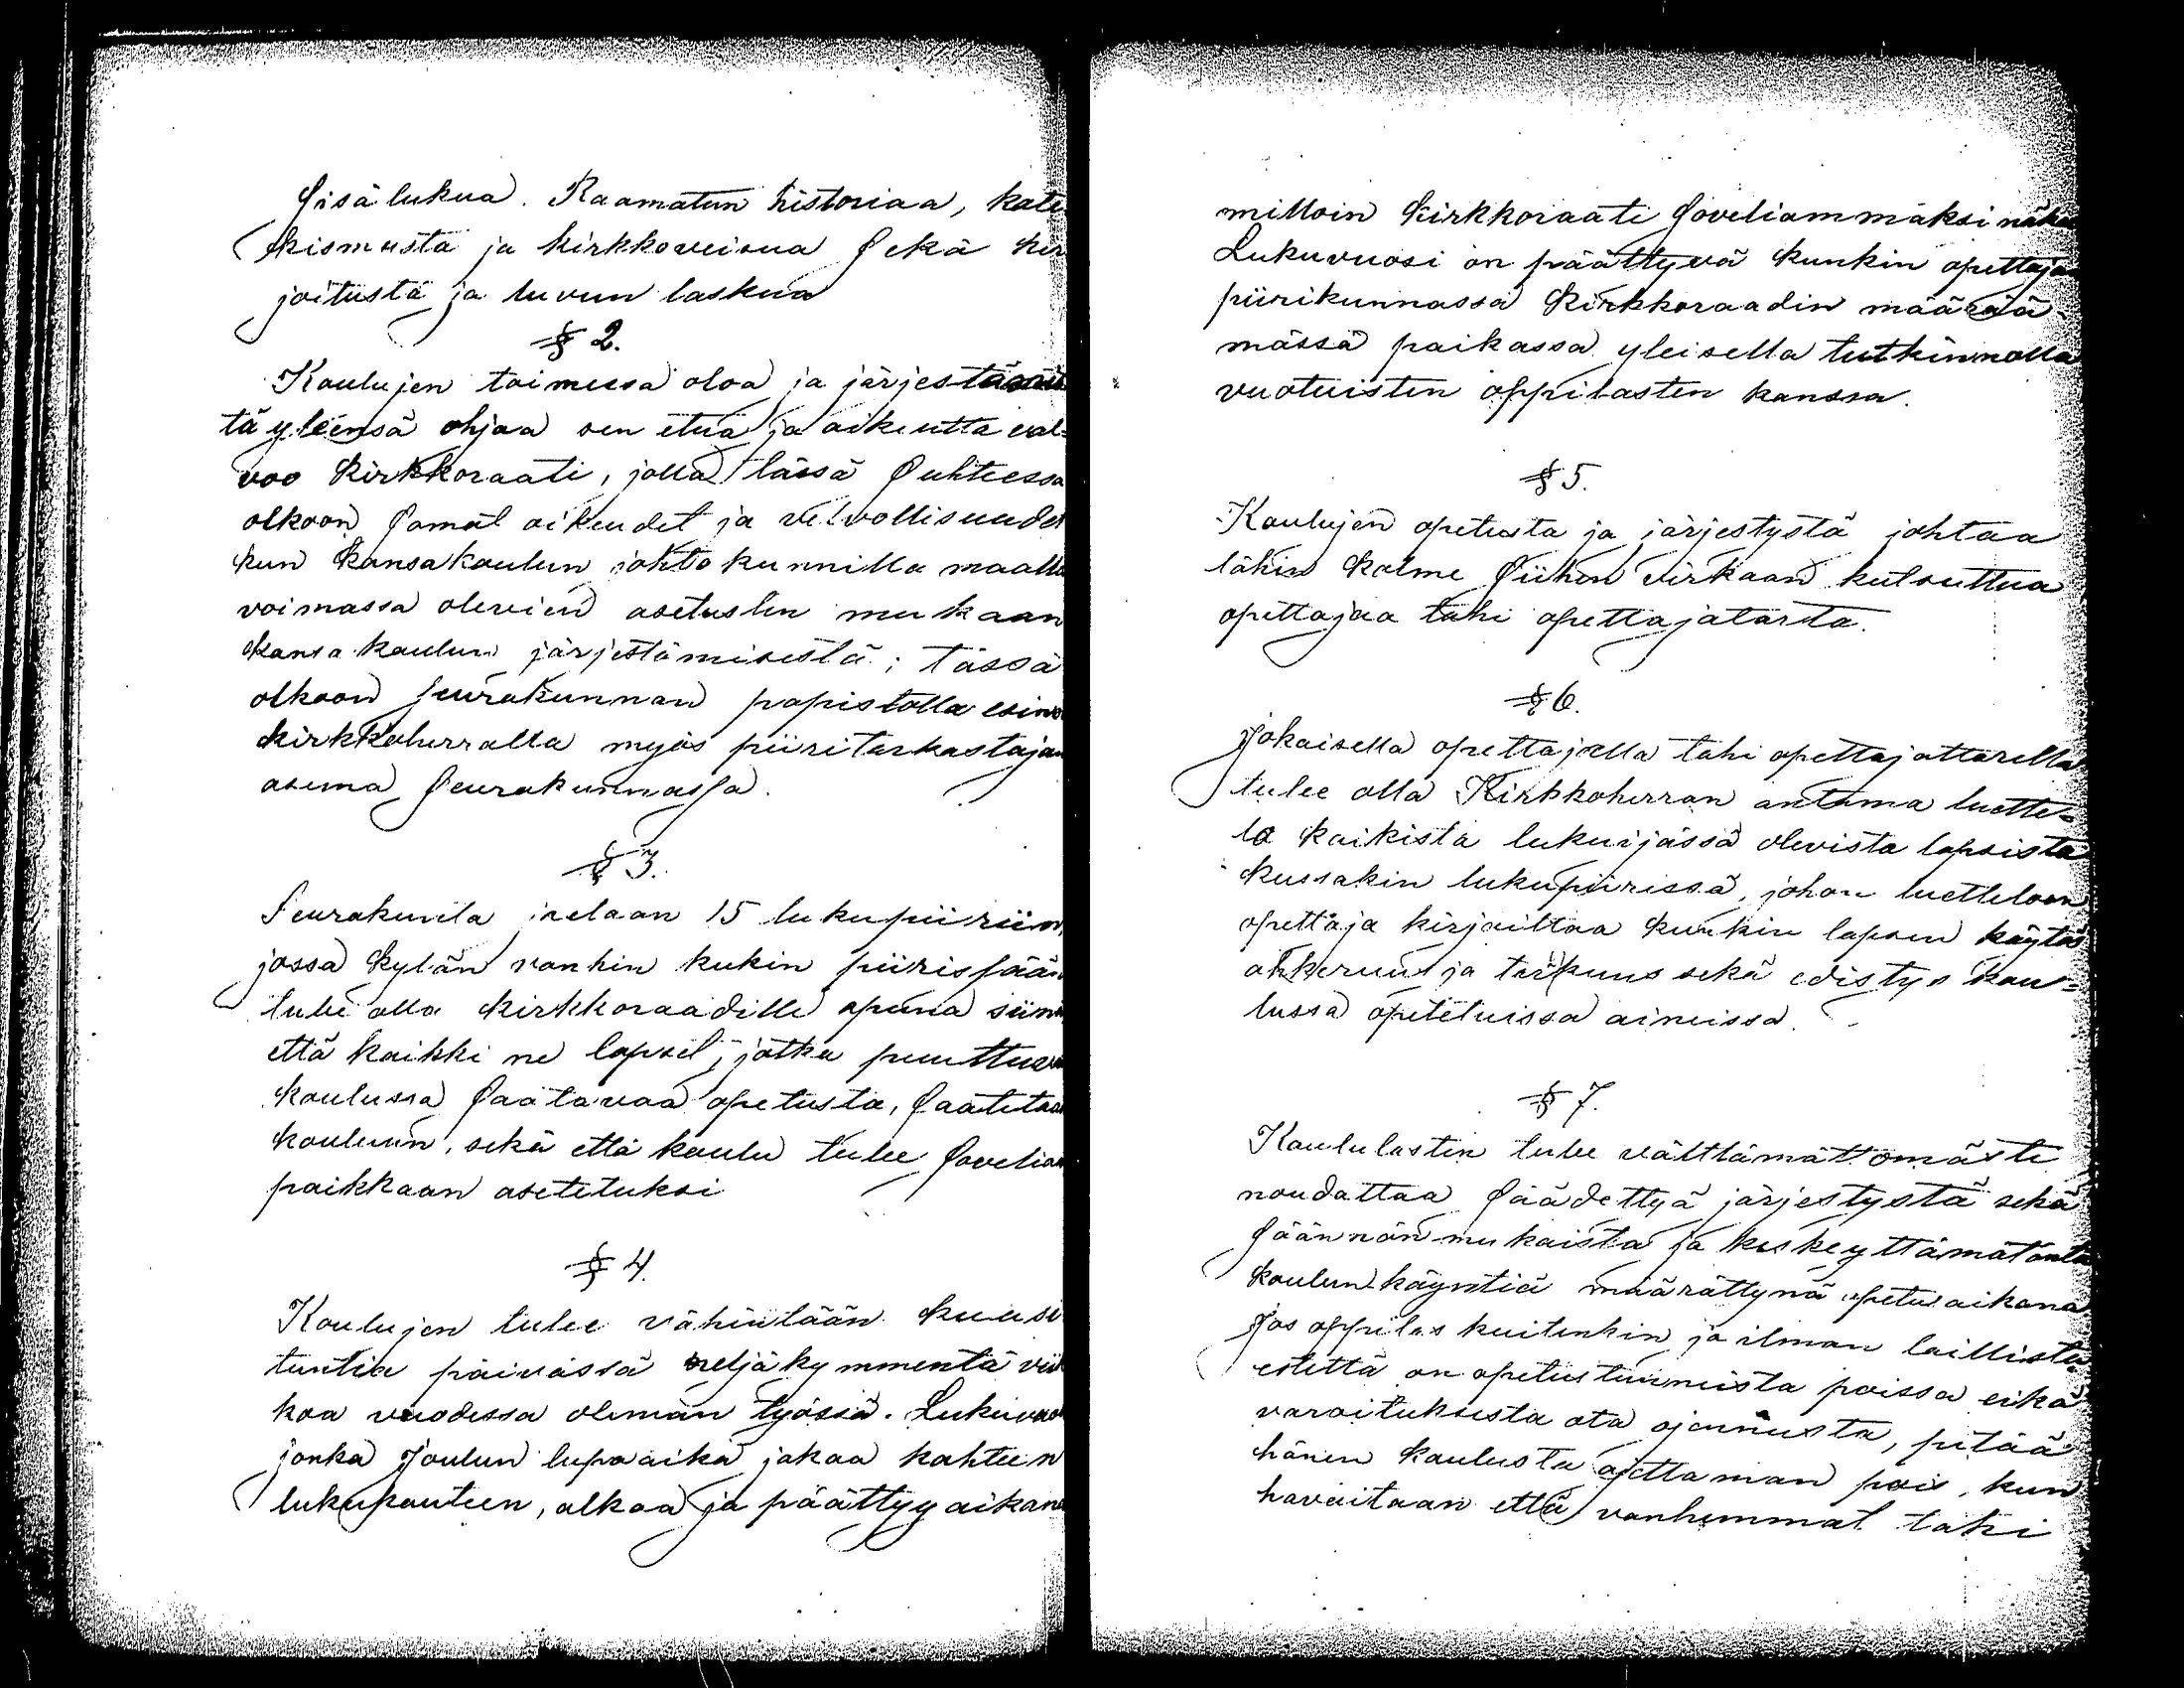 sisälukua. Raamatun historiaa, kate
kismusta ja kirkkoveisua sekä kir
joitusta ja luvun laskua
§ 2.
Koulujen toimessa oloa ja järjestämis
tä yleensä ohjaa sen etua ja oikeutta val=
voo kirkkoraati, jolla tässä suhteessa
olkoon samat oikeudet ja velvollisuudet
kun kansakoulun johtokunnilla maalla
voimassa olevien asetusten mukaan
kansakoulun järjestämisestä; tässä
olkoon seurakunnan papistolla esim
kirkkoherralla myös piiritarkastajan
asema seurakunnassa.
§ 3.
Seurakunta jaetaan 15 lukupiiriin,
jossa kylän vanhin kukin piirissään
tulee olla kirkkoraadille apuna siinä
että kaikki ne lapset, jotka puuttuva
koulussa saatavaa opetusta, saatetaan
kouluun, sekä että koulu tulee sovelian
paikkaan asetetuksi
§ 4.
Koulujen tulee vähintään kuusi
tuntia päivässä neljäkymmentä viik
koa vuodessa oleman työssä. Lukuvuo
jonka Joulun lupaaika jakaa kahteen
lukukauteen, alkaa ja päättyy aikana
milloin kirkkoraati soveliammaksi näkee
Lukuvuosi on päättyvä kunkin opettajan
piirikunnassa Kirkkoraadin määrää
mässä paikassa yleisellä tutkinnolla
vuotuisten oppilasten kanssa.
§ 5.
Koulujen opetusta ja järjestystä johtaa
lähin kolme siihen virkaan kutsuttua
opettajaa tahi opettajatarta.
§ 6.
Jokaisella opettajalla tahi opettajattarella
tulee olla Kirkkoherran antama luette=
lo kaikista lukuijässä olevista lapsista
kussakin lukupiirissä, johon luetteloon
opettaja kirjoittaa kunkin lapsen käytös
ahkeruus ja tarkuus sekä edistys kou=
lussa opetetuissa aineissa.
§ 7.
Koululasten tulee välttämättömästi
noudattaa säädettyä järjestystä sekä
säännön mukaista ja keskeyttämätöntä
koulunkäyntiä määrättynä opetusaikana.
Jos oppilas kuitenkin jo ilman laillista
estettä on opetustunneista poissa eikä
varoituksesta ota ojennusta, pitää
hänen koulusta otettaman pois, kun
havaitaan että vanhemmat tahi